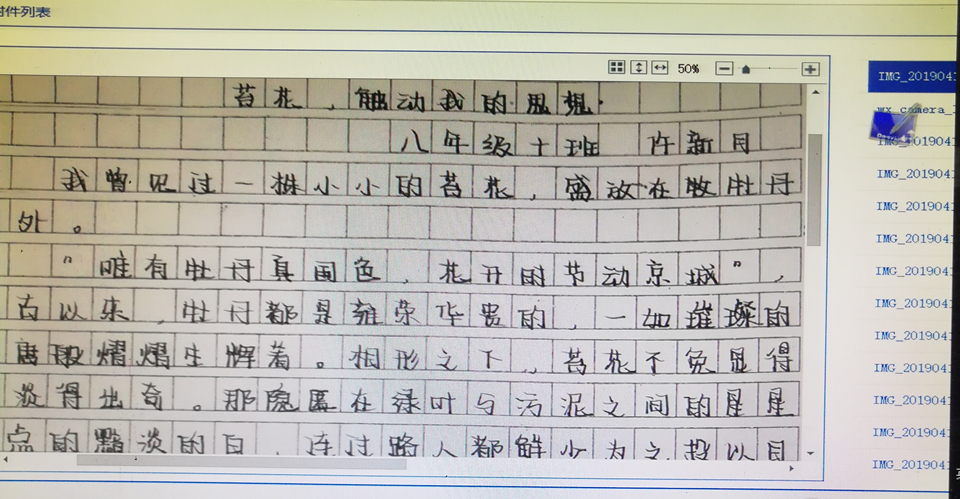 附件列表
50%
苔花，触动我的思想.
八年级十班 许新月
我曾见过一株小小的苔花，盛放在牧牡丹
外。
"唯有牡丹真国色，花开时节动京城"，
古以来，牡丹都是雍荣华贵的，一如璀璨的
唐熠熠生辉着。相形之下，苔花不免显得
淡得出奇。那隐匿在绿叶与污泥之间的星星
点的黯淡的白，连过路人都鲜少为之投以目
IMG_2019041
wx_camera_1
IMG_2019041
IMG_2019041
IMG_2019041
IMG_2019041
IMG_2019041
IMG_2019041
IMG_2019041
IMG_2019041
IMG_2019041
IMG_2019041
IMG_2019041